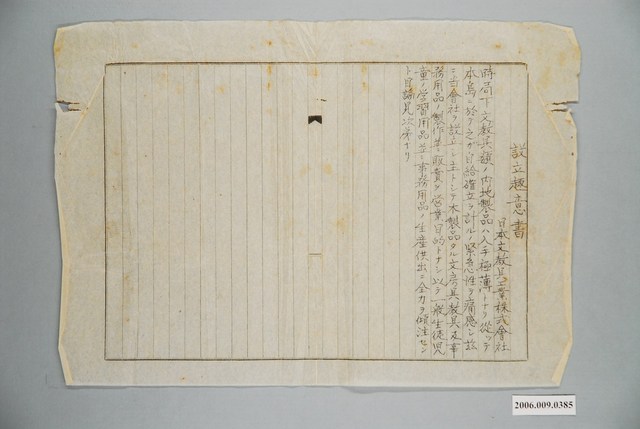 設立趣意書
日本文教具工業株式會社
時局下文教具類ノ内地製品ハ入手極薄トナリ從ッテ
本島ニ於テ之ガ自給確立ヲ計ルノ緊急性ヲ痛感シ茲
ニ當會社ヲ設立シ主トシテ木製品タル文房具教具及事
務用品ノ製作並販賣ヲ營業目的トナシ以テ一般生徒兒
童ノ学習用品並ニ事務用品ノ生産供出ニ全力ヲ傾注セン
ト目論見次第ナリ
2006.009.0385